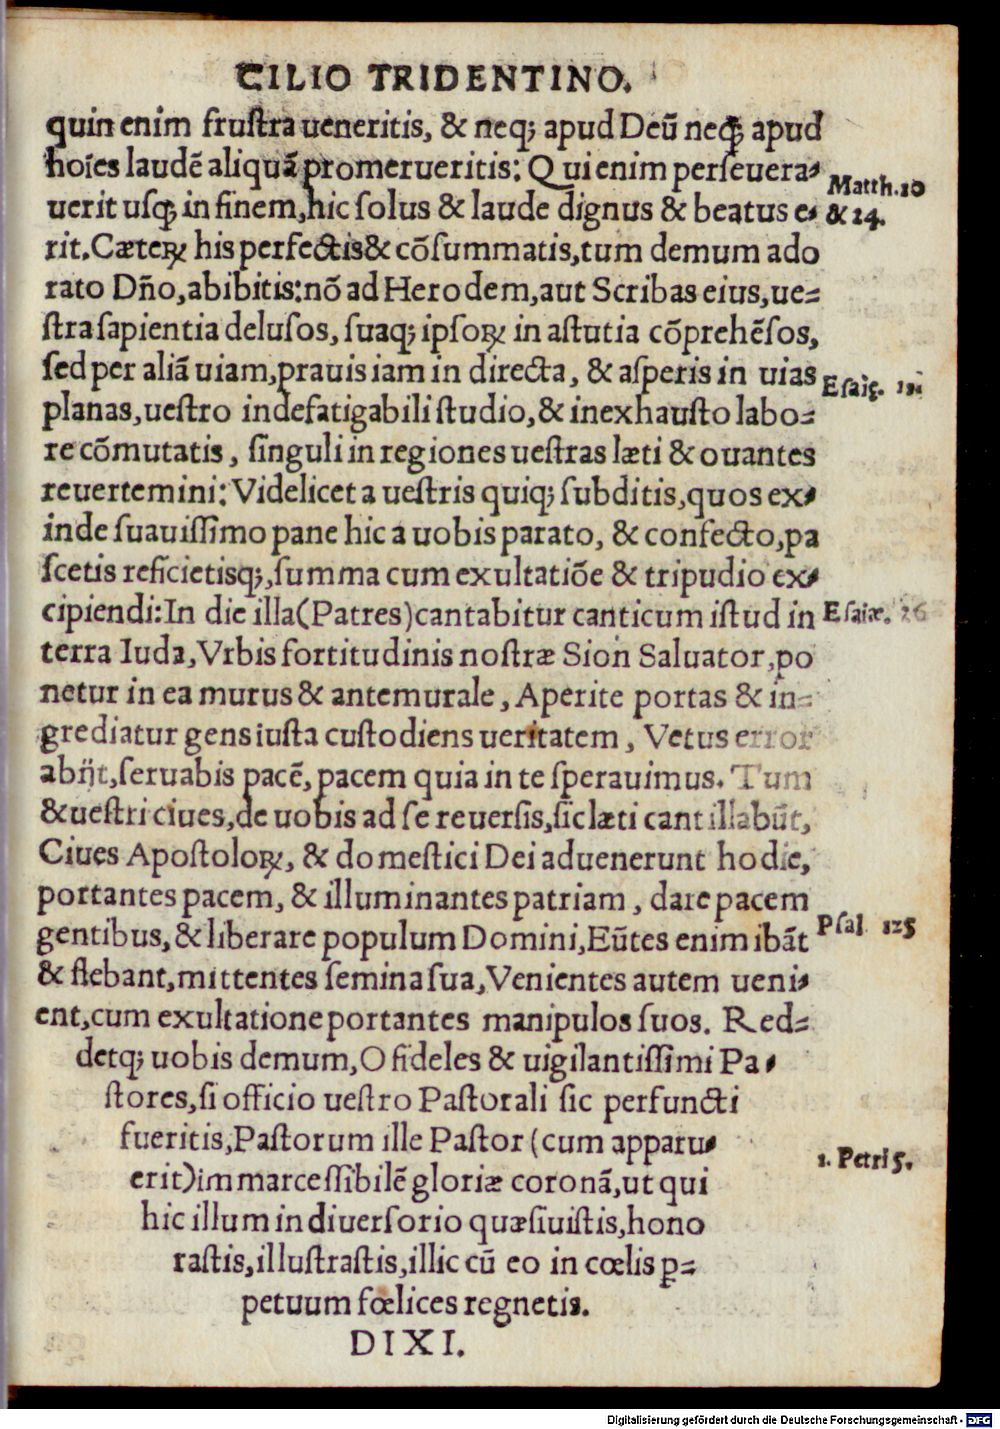 CILIO TRIDENTINO.
quin enim frustra ueneritis, & neq; apud Deū neq; apud
hoīes laudē aliquā promerueritis: Qui enim perseuera-
uerit usq; in finem, hic solus & laude dignus & beatus e-
Matth. 10
& 24.
rit. Cæteꝝ his perfectis & cōsummatis, tum demum ado
rato Dño, abibitis: nō ad Herodem, aut Scribas eius, ue=
stra sapientia delusos, suaq; ipsoꝝ in astutia cōprehēsos,
sed per aliā uiam, prauis iam in directa, & asperis in uias
Esaię.
planas, uestro indefatigabili studio, & inexhausto labo=
re cōmutatis, singuli in regiones uestras læti & ouantes
reuertemini: Videlicet a uestris quiq; subditis, quos ex-
inde suauissimo pane hic a uobis parato, & confecto, pa
scetis reficietisq;, summa cum exultatiōe & tripudio ex-
cipiendi: In die illa (Patres) cantabitur canticum istud in
Esaiæ. 26
terra Iuda, Vrbis fortitudinis nostræ Sion Saluator, po
netur in ea murus & antemurale, Aperite portas & in=
grediatur gens iusta custodiens ueritatem, Vetus error
abijt, seruabis pacē, pacem quia in te sperauimus. Tum
& uestri ciues, de uobis ad se reuersis, sic læti cantillabūt,
Ciues Apostoloꝝ, & domestici Dei aduenerunt hodie,
portantes pacem, & illuminantes patriam, dare pacem
gentibus, & liberare populum Domini, Eūtes enim ibāt
Psal 125
& flebant, mittentes semina sua, Venientes autem ueni-
ent, cum exultatione portantes manipulos suos. Red=
detq; uobis demum, O fideles & uigilantissimi Pa-
stores, si officio uestro Pastorali sic perfuncti
fueritis, Pastorum ille Pastor (cum apparu-
1. Petri 5.
erit) immarcessibilē gloriæ coronā, ut qui
hic illum in diuersorio quæsiuistis, hono
rastis, illustrastis, illic cū eo in cœlis ꝑ=
petuum fœlices regnetis.
DIXI.
Digitalisierung gefördert durch die Deutsche Forschungsgemeinschaft - DFG